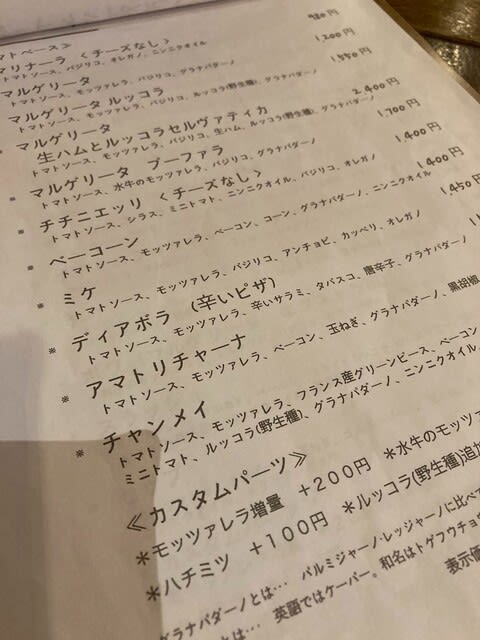 マトベース≫
マリナーラ <チーズなし> 980円
トマトソース、バジリコ、オレガノ、ニンニクオイル
マルゲリータ 1,200円
トマトソース、モッツァレラ、バジリコ、グラナパダーノ
マルゲリータ ルッコラ 1,550円
トマトソース、モッツァレラ、バジリコ、ルッコラ(野生種)、グラナパダーノ
マルゲリータ
生ハムとルッコラセルヴァティカ 2,400円
トマトソース、モッツァレラ、バジリコ、生ハム、ルッコラ(野生種)、グラナパダーノ
※ マルゲリータ ブーファラ 1,700円
トマトソース、水牛のモッツァレラ、バジリコ、グラナパダーノ
※ チチニエッリ <チーズなし> 1,400円
トマトソース、シラス、ミニトマト、ニンニクオイル、バジリコ、オレガノ
※ ベーコーン 1,400円
トマトソース、モッツァレラ、ベーコン、コーン、グラナパダーノ、ニンニクオイル
※ ミケ 1,450円
トマトソース、モッツァレラ、バジリコ、アンチョビ、カッペリ、オレガノ
※ ディアボラ (辛いピザ)
トマトソース、モッツァレラ、辛いサラミ、タバスコ、唐辛子、グラナパダーノ
※ アマトリチャーナ
トマトソース、モッツァレラ、ベーコン、玉ねぎ、グラナパダーノ、黒胡椒
※ チャンメイ
トマトソース、モッツァレラ、フランス産グリーンピース、ベーコン
ミニトマト、ルッコラ(野生種)、グラナパダーノ、ニンニクオイル、
≪カスタムパーツ≫
*モッツァレラ増量 +200円 *水牛のモッツァ
*ハチミツ +100円 *ルッコラ(野生種)追加
グラナパダーノとは… パルミジャーノ・レッジャーノに比べて
とは… 英語ではケーパー。和名はトゲフウチョウ
表示価